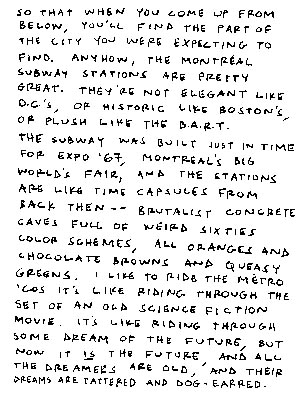 SO THAT WHEN YOU COME UP FROM
BELOW, YOU'LL FIND THE PART OF
THE CITY YOU WERE EXPECTING TO
FIND. ANYHOW, THE MONTRÉAL
SUBWAY STATIONS ARE PRETTY
GREAT. THEY'RE NOT ELEGANT LIKE
D.C.'S, OR HISTORIC LIKE BOSTON'S,
OR PLUSH LIKE THE B.A.R.T.
THE SUBWAY WAS BUILT JUST IN TIME
FOR EXPO '67, MONTREAL'S BIG
WORLD'S FAIR, AND THE STATIONS
ARE LIKE TIME CAPSULES FROM
BACK THEN -- BRUTALIST CONCRETE
CAVES FULL OF WEIRD SIXTIES
COLOR SCHEMES, ALL ORANGES AND
CHOCOLATE BROWNS AND QUEASY
GREENS. I LIKE TO RIDE THE MÉTRO
'COS IT'S LIKE RIDING THROUGH THE
SET OF AN OLD SCIENCE FICTION
MOVIE. IT'S LIKE RIDING THROUGH
SOME DREAM OF THE FUTURE, BUT
NOW IT IS THE FUTURE, AND ALL
THE DREAMERS ARE OLD, AND THEIR
DREAMS ARE TATTERED AND DOG-EARRED.